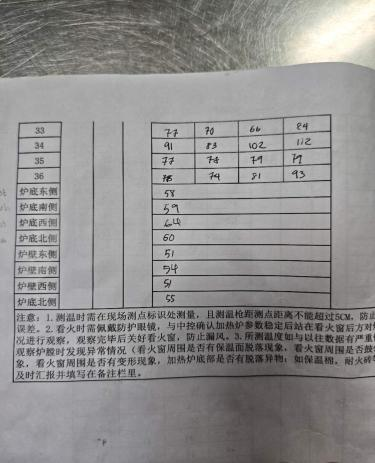 33 77 70 66 84
34 91 83 102 112
35 77 74 79 79
36 74 81 93
炉底东侧 58
炉底南侧 59
炉底西侧 64
炉底北侧 60
炉壁东侧 51
炉壁南侧 54
炉壁西侧 51
炉底北侧 55
注意：1.测温时需在现场测点标识处测量，且测温枪距测点距离不能超过5CM，防止
误差。2.看火时需佩戴防护眼镜，与中控确认加热炉参数稳定后站在看火窗后方对
况进行观察，观察完毕后关好看火窗，防止漏风。3.所测温度如与以往数据有严重
观察炉膛时发现异常情况（看火窗周围是否有保温面脱落现象，看火窗周围是否鼓
象，看火窗周围是否有变形现象，加热炉底部是否有脱落异物：如保温棉，耐火砖
及时汇报并填写在备注栏里。